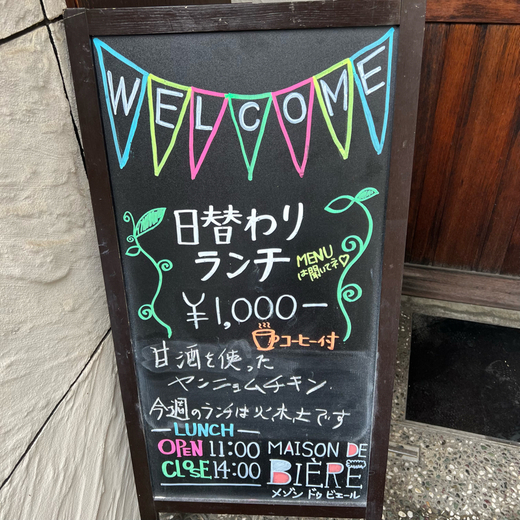 WELCOME
日替わり
ランチ
MENU
は聞いてネ♡
¥1,000−
コーヒー付
甘酒を使った
ヤンニョムチキン.
今週のランチは火木土です
—LUNCH—
OPEN 11:00
CLOSE 14:00
MAISON DE
BIÈRE
メゾン ドゥ ビエール